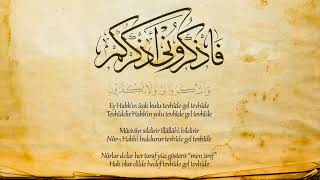 فاذكروني أذكركم
واشكروا لي ولا تكفرون
Ey Hakk'ın âşık kulu tevhîde gel tevhîde
Tevhîddir Hakk'ın yolu tevhîde gel tevhîde
Mâsivâyı sildirir illâllâh'ı bildirir
Nûr-ı Hakk'ı buldurur tevhîde gel tevhîde
Nûrlar dolar her taraf yüz gösterir "men 'aref"
Hak olur dilde hedef tevhîde gel tevhîde